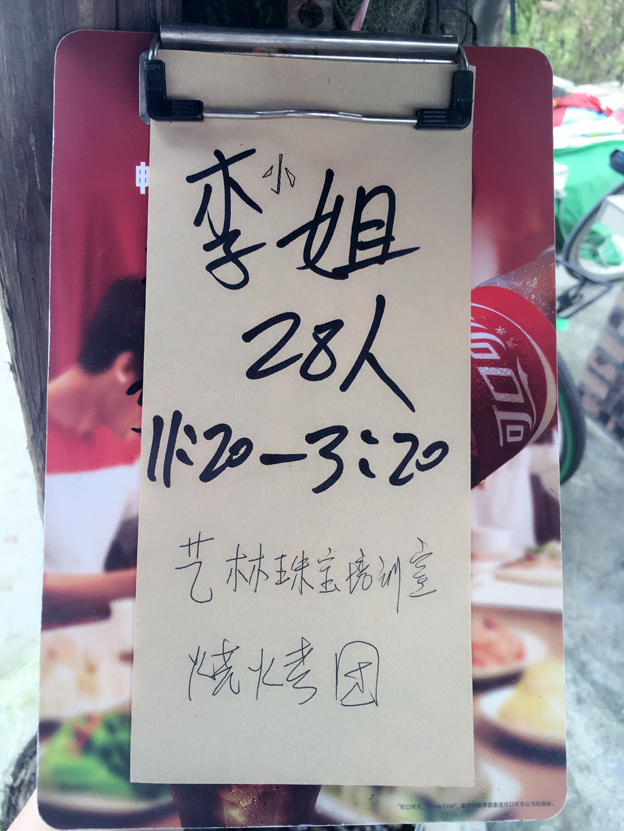 李小姐
28人
11:20—3:20
艺林珠宝培训室
烧烤团